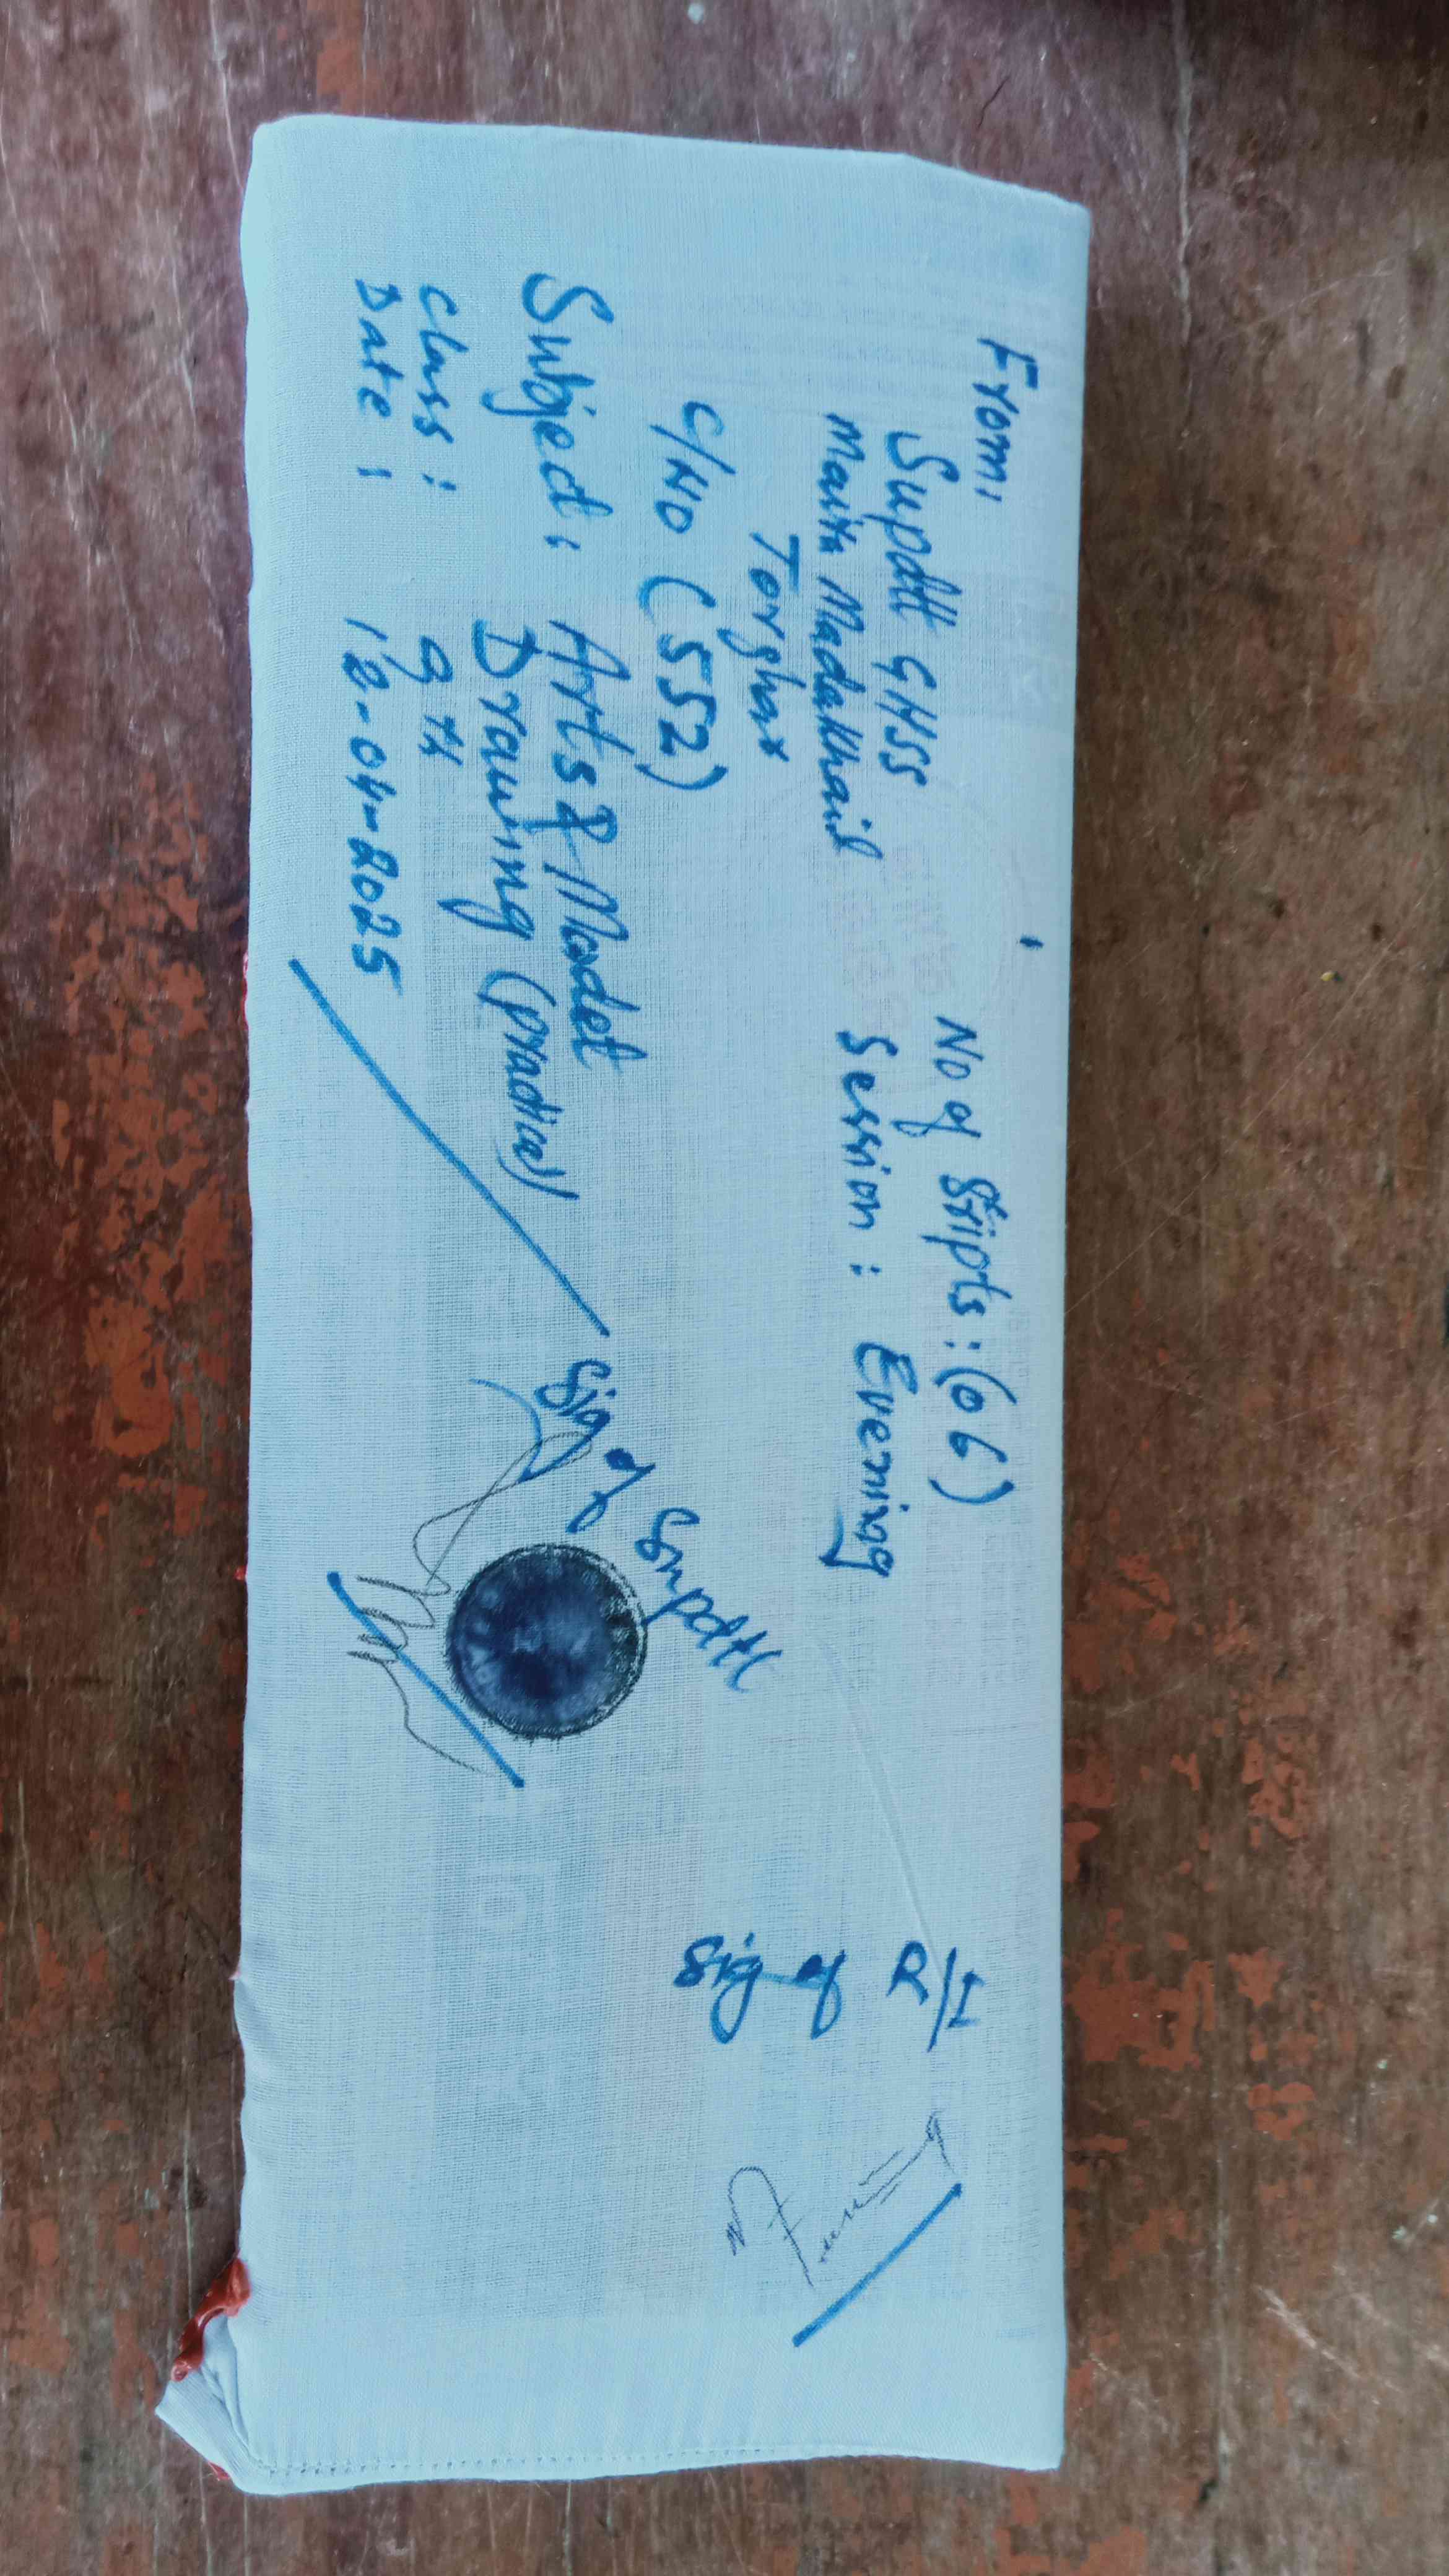 From,
Supdtt GHSS
Maira Madakhail
Torghar
C/No (552)
Subject : Arts & Model
Drawing (practical)
Class : 9 th
Date : 18-04-2025
No of Scripts : (06)
Session : Evening
Sig of Supdtt
Sig of R/I